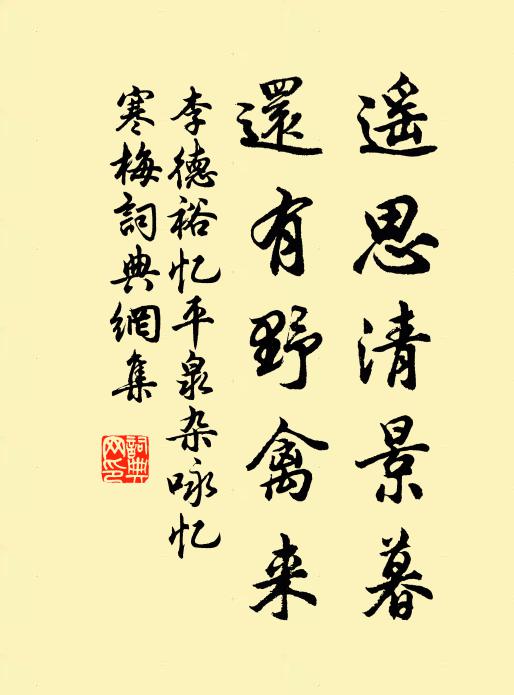 遥思清景暮
還有野禽来
李德裕忆平泉杂咏忆
寒梅詞典網集
詞典
网印